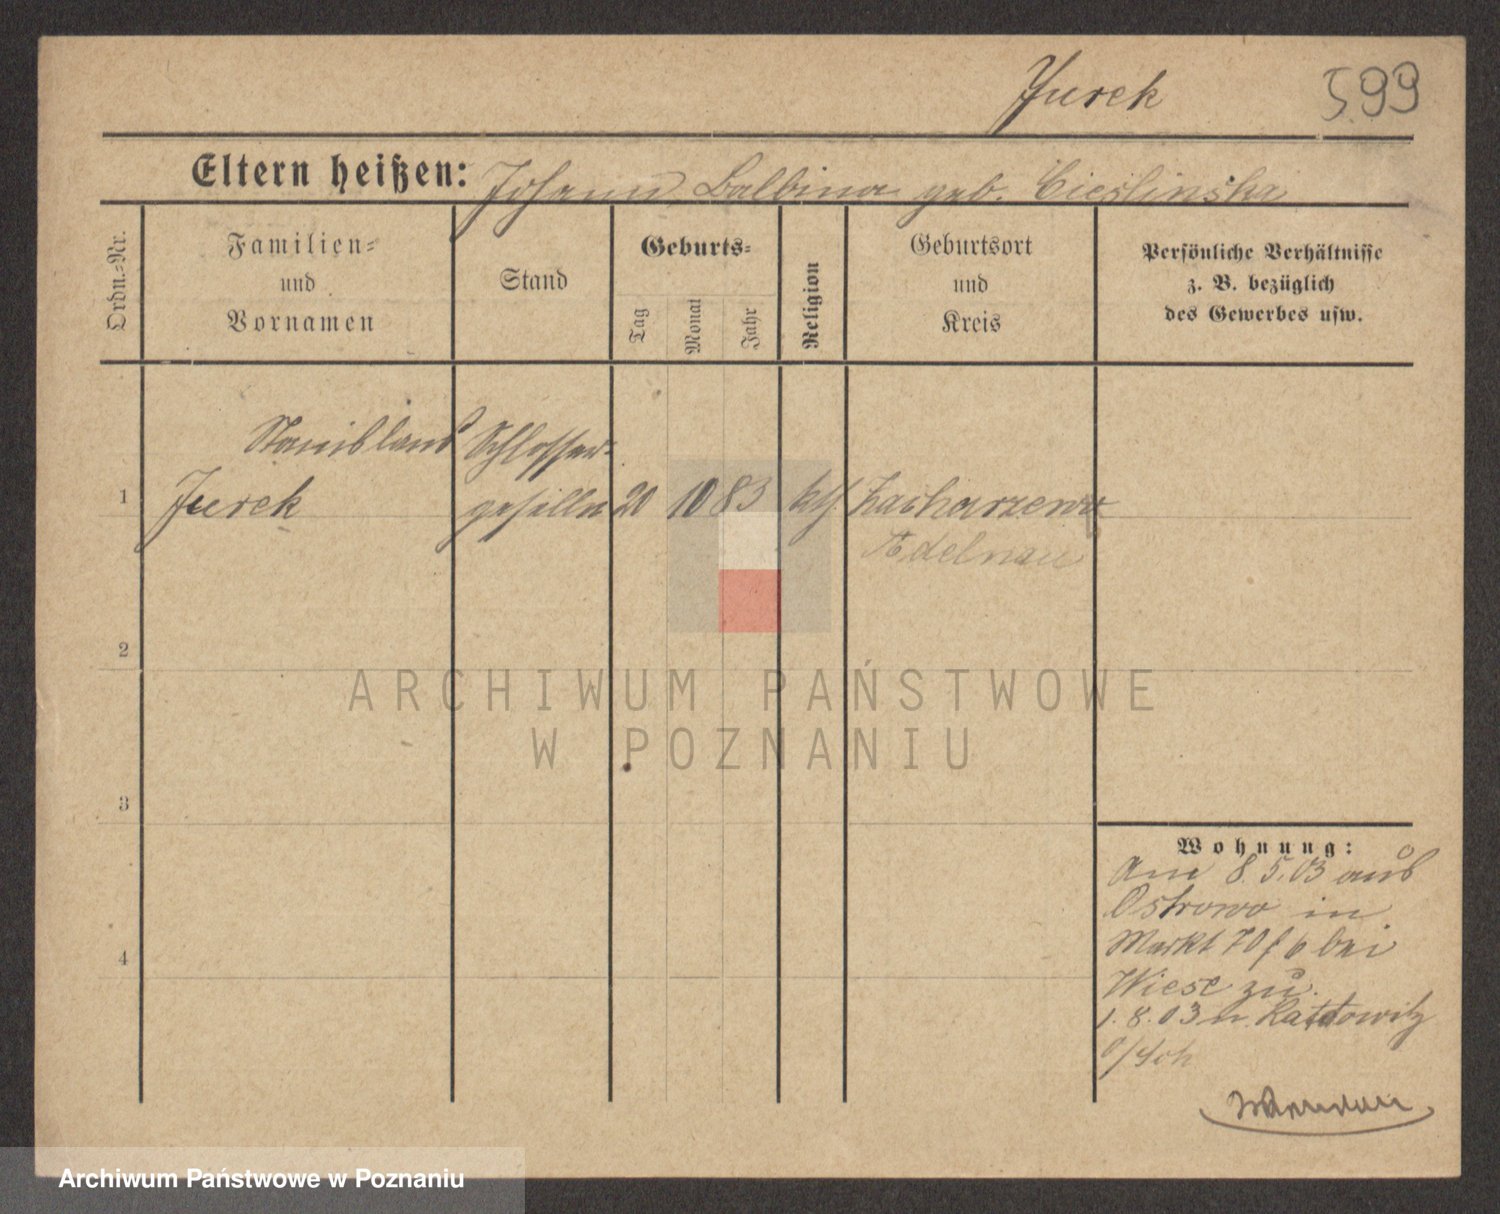 Jurek
599
Eltern heißen: Johann, Balbina geb. Cieslinska
Ordn.=Nr.
Familien=
und
Vornamen
Stand
Geburts=
Tag
Monat
Jahr
Religion
Geburtsort
und
Kreis
Persönliche Verhältnisse
z. B. bezüglich
des Gewerbes usw.
Stanislaus Schlosser=
1 Jurek geselle 20 10 83 kth. Zacharzewo
Adelnau
2
ARCHIWUM PAŃSTWOWE
W POZNANIU
3
4
Wohnung:
Am 8.5.03 aus
Ostrowo in
Markt 70/6 bei
Wiese zu.
1.8.03 n. Kattowitz
O/Sch
Archiwum Państwowe w Poznaniu